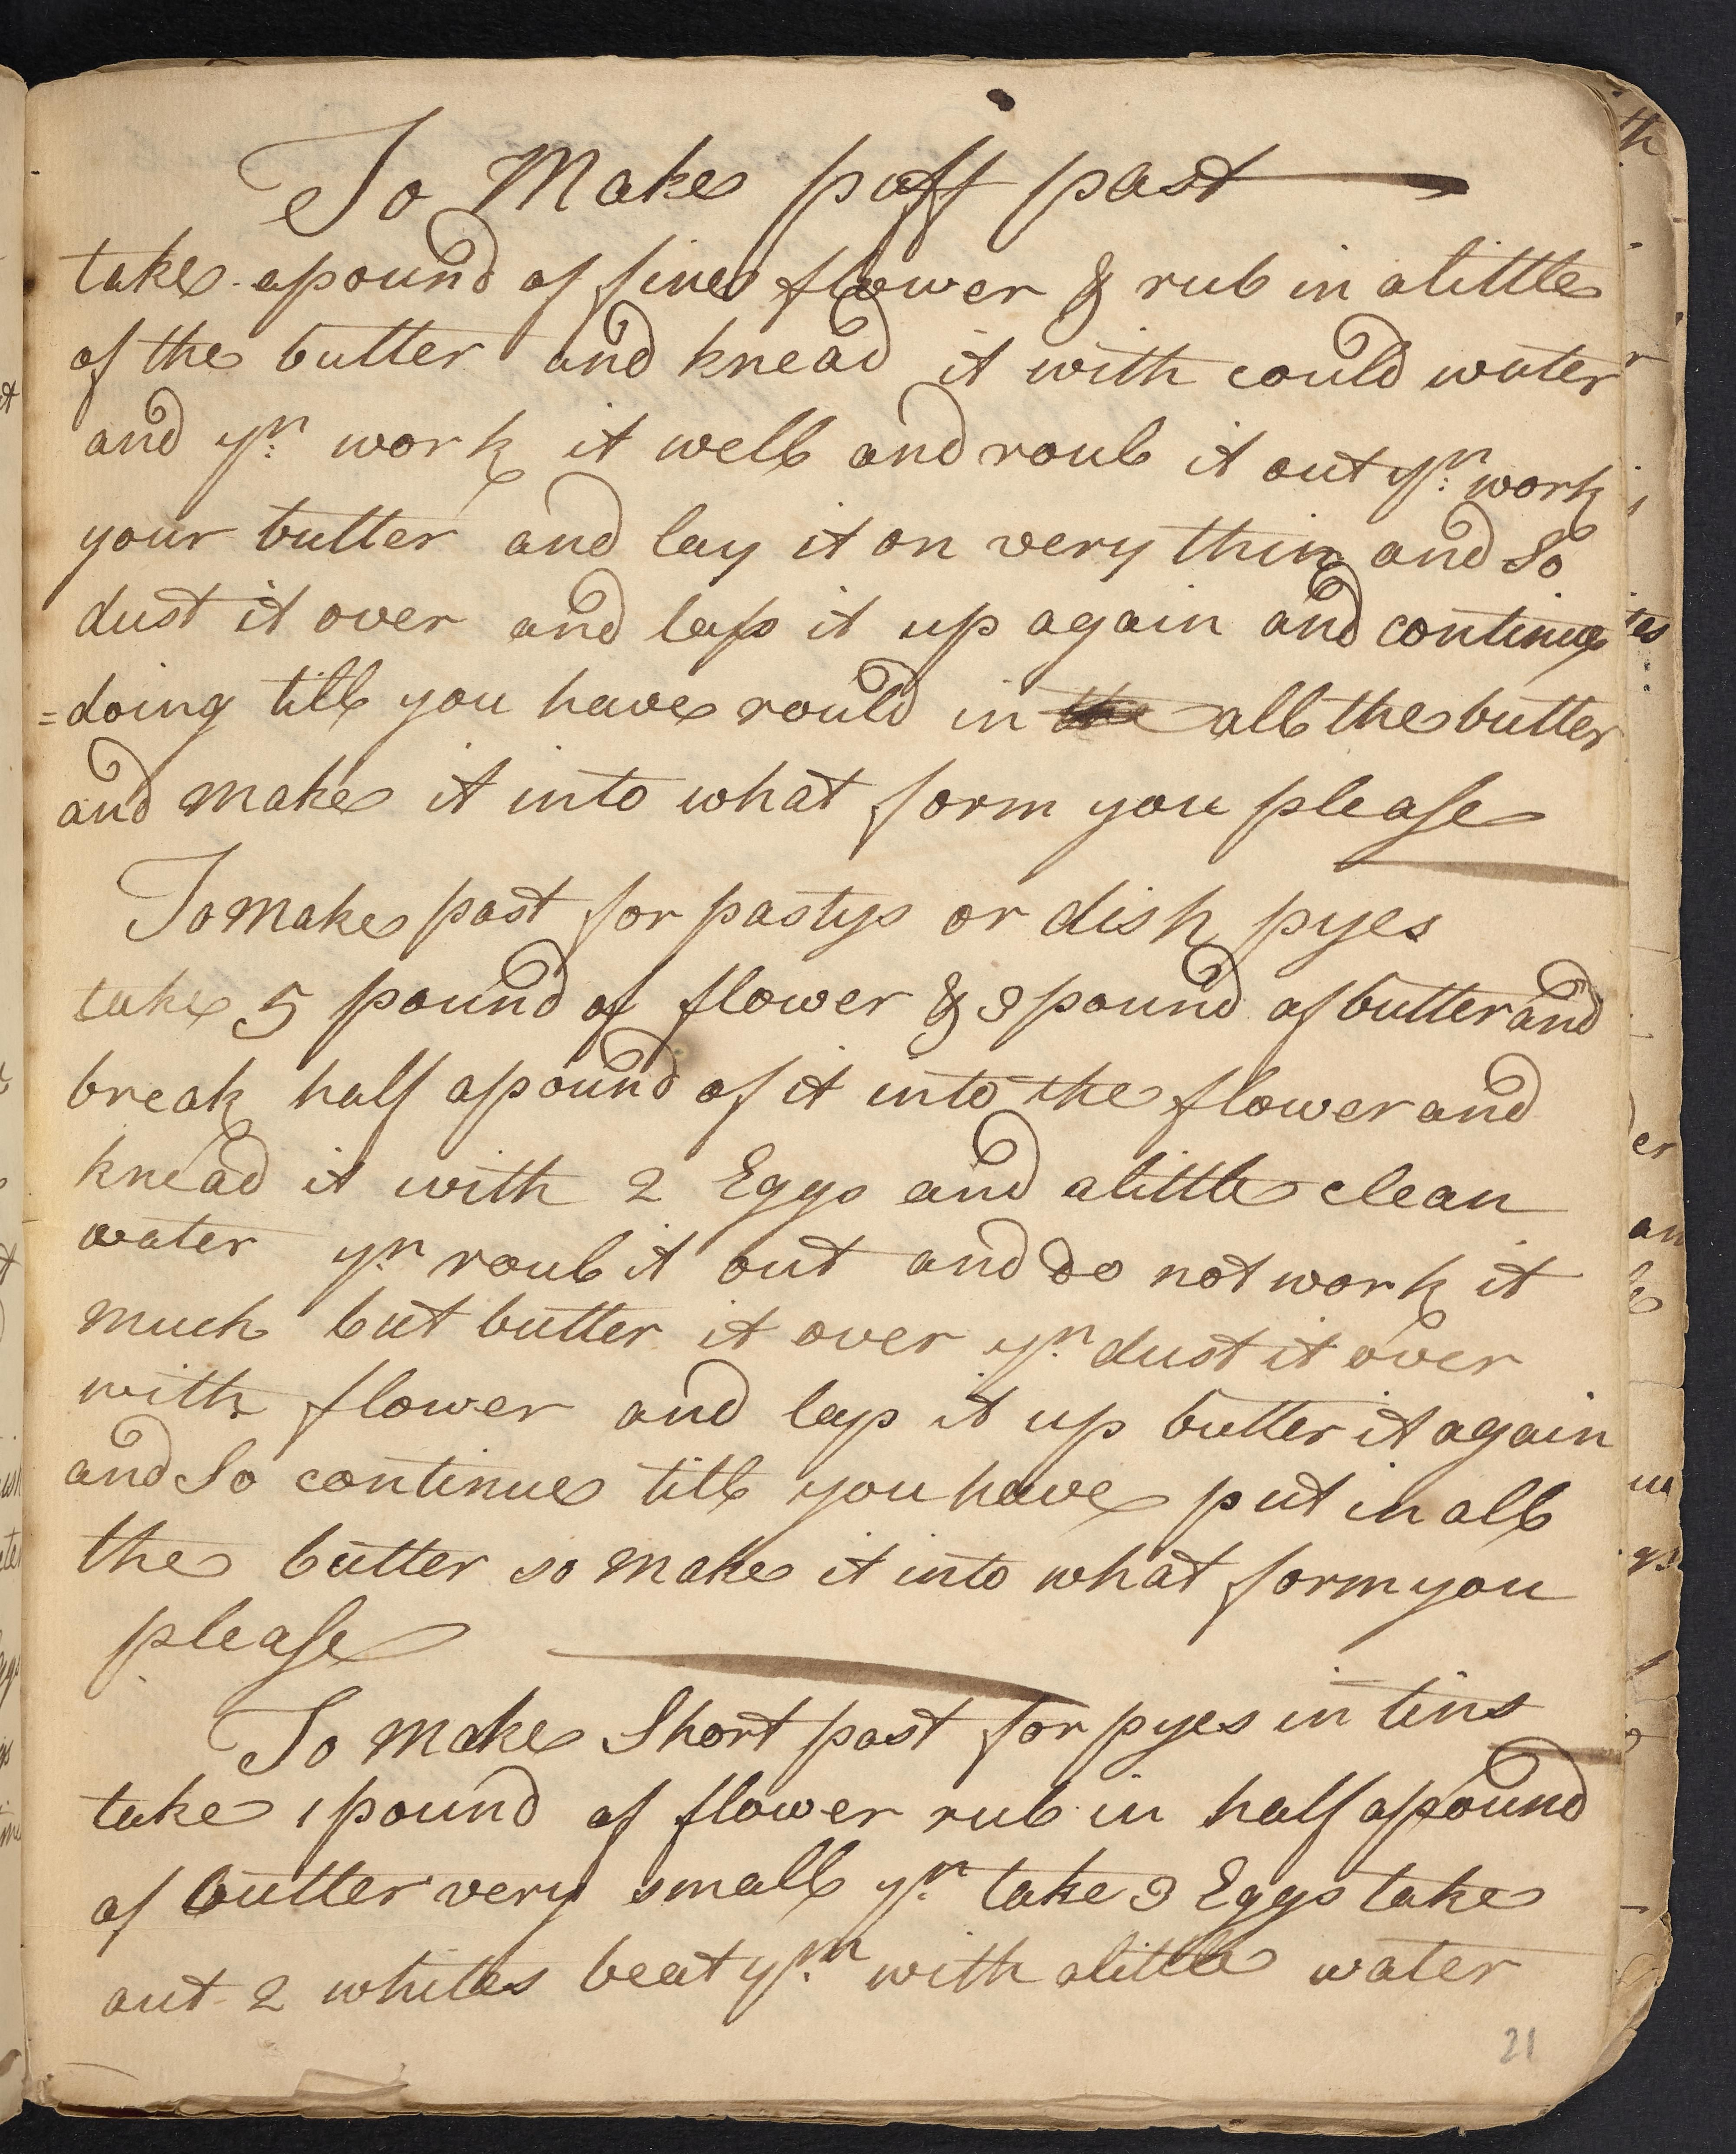 To Make puff past
take apound of fine flower & rub in alittle
of the butter and knead it with could water
and yn: work it well and roul it out yn: work
your butter and lay it on very thin and So
dust it over and lap it up again and continue
=doing till you have rould in the all the butter
and make it into what form you please
To make past for pastys or dish pyes
take 5 pound of flower & 3 pound of butter and
break half apound of it into the flower and
knead it with 2 Eggs and alittle clean
water yn: roul it out and do not work it
much but butter it over yn: dust it over
with flower and lap it up butter it again
and So continue till you have put in all
the butter so make it into what form you
please
To make Short past for pyes in tins
take 1 pound of flower rub in half apound
of butter very small yn: take 3 Eggs take
out 2 whites beat ym: with alittle water
21